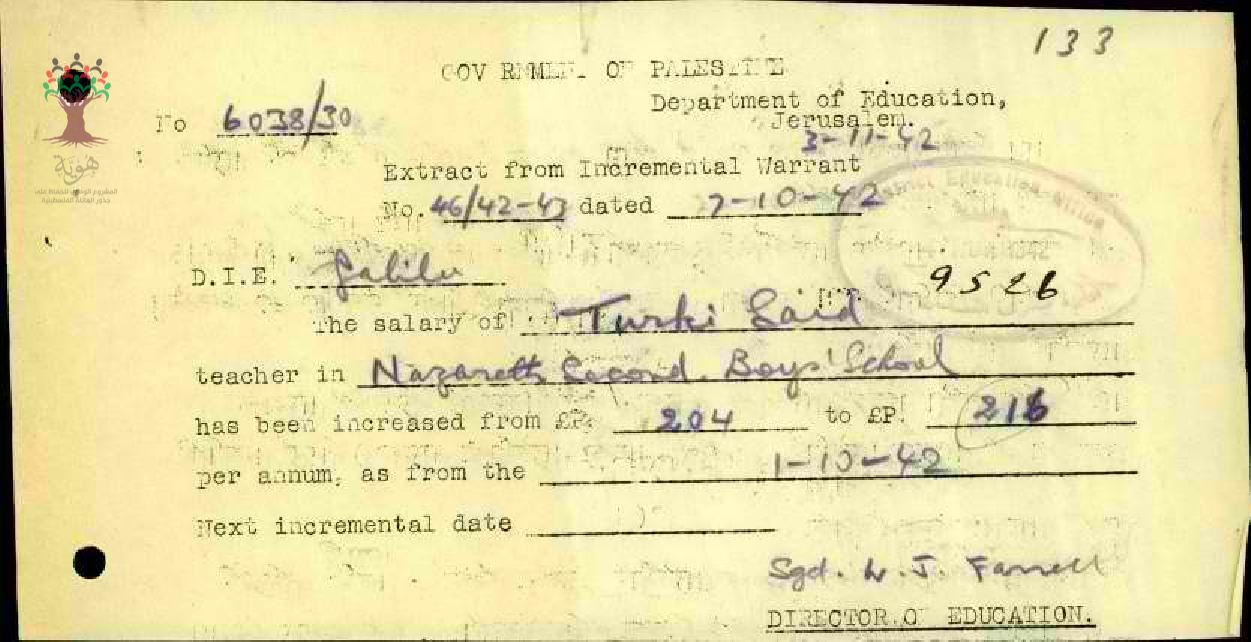 133
GOVERNMENT OF PALESTINE
Department of Education,
Jerusalem.
No 6038/30
3-11-42
Extract from Incremental Warrant
No. 46/42-43 dated 7-10-42
District Education Office
هوية
D.I.E. Galilee
9526
The salary of Turki Said
teacher in Nazareth Second. Boys' School
has been increased from £P. 204 to £P. 216
per annum, as from the 1-10-42
Next incremental date
Sgd. W. J. Farrell
DIRECTOR OF EDUCATION.